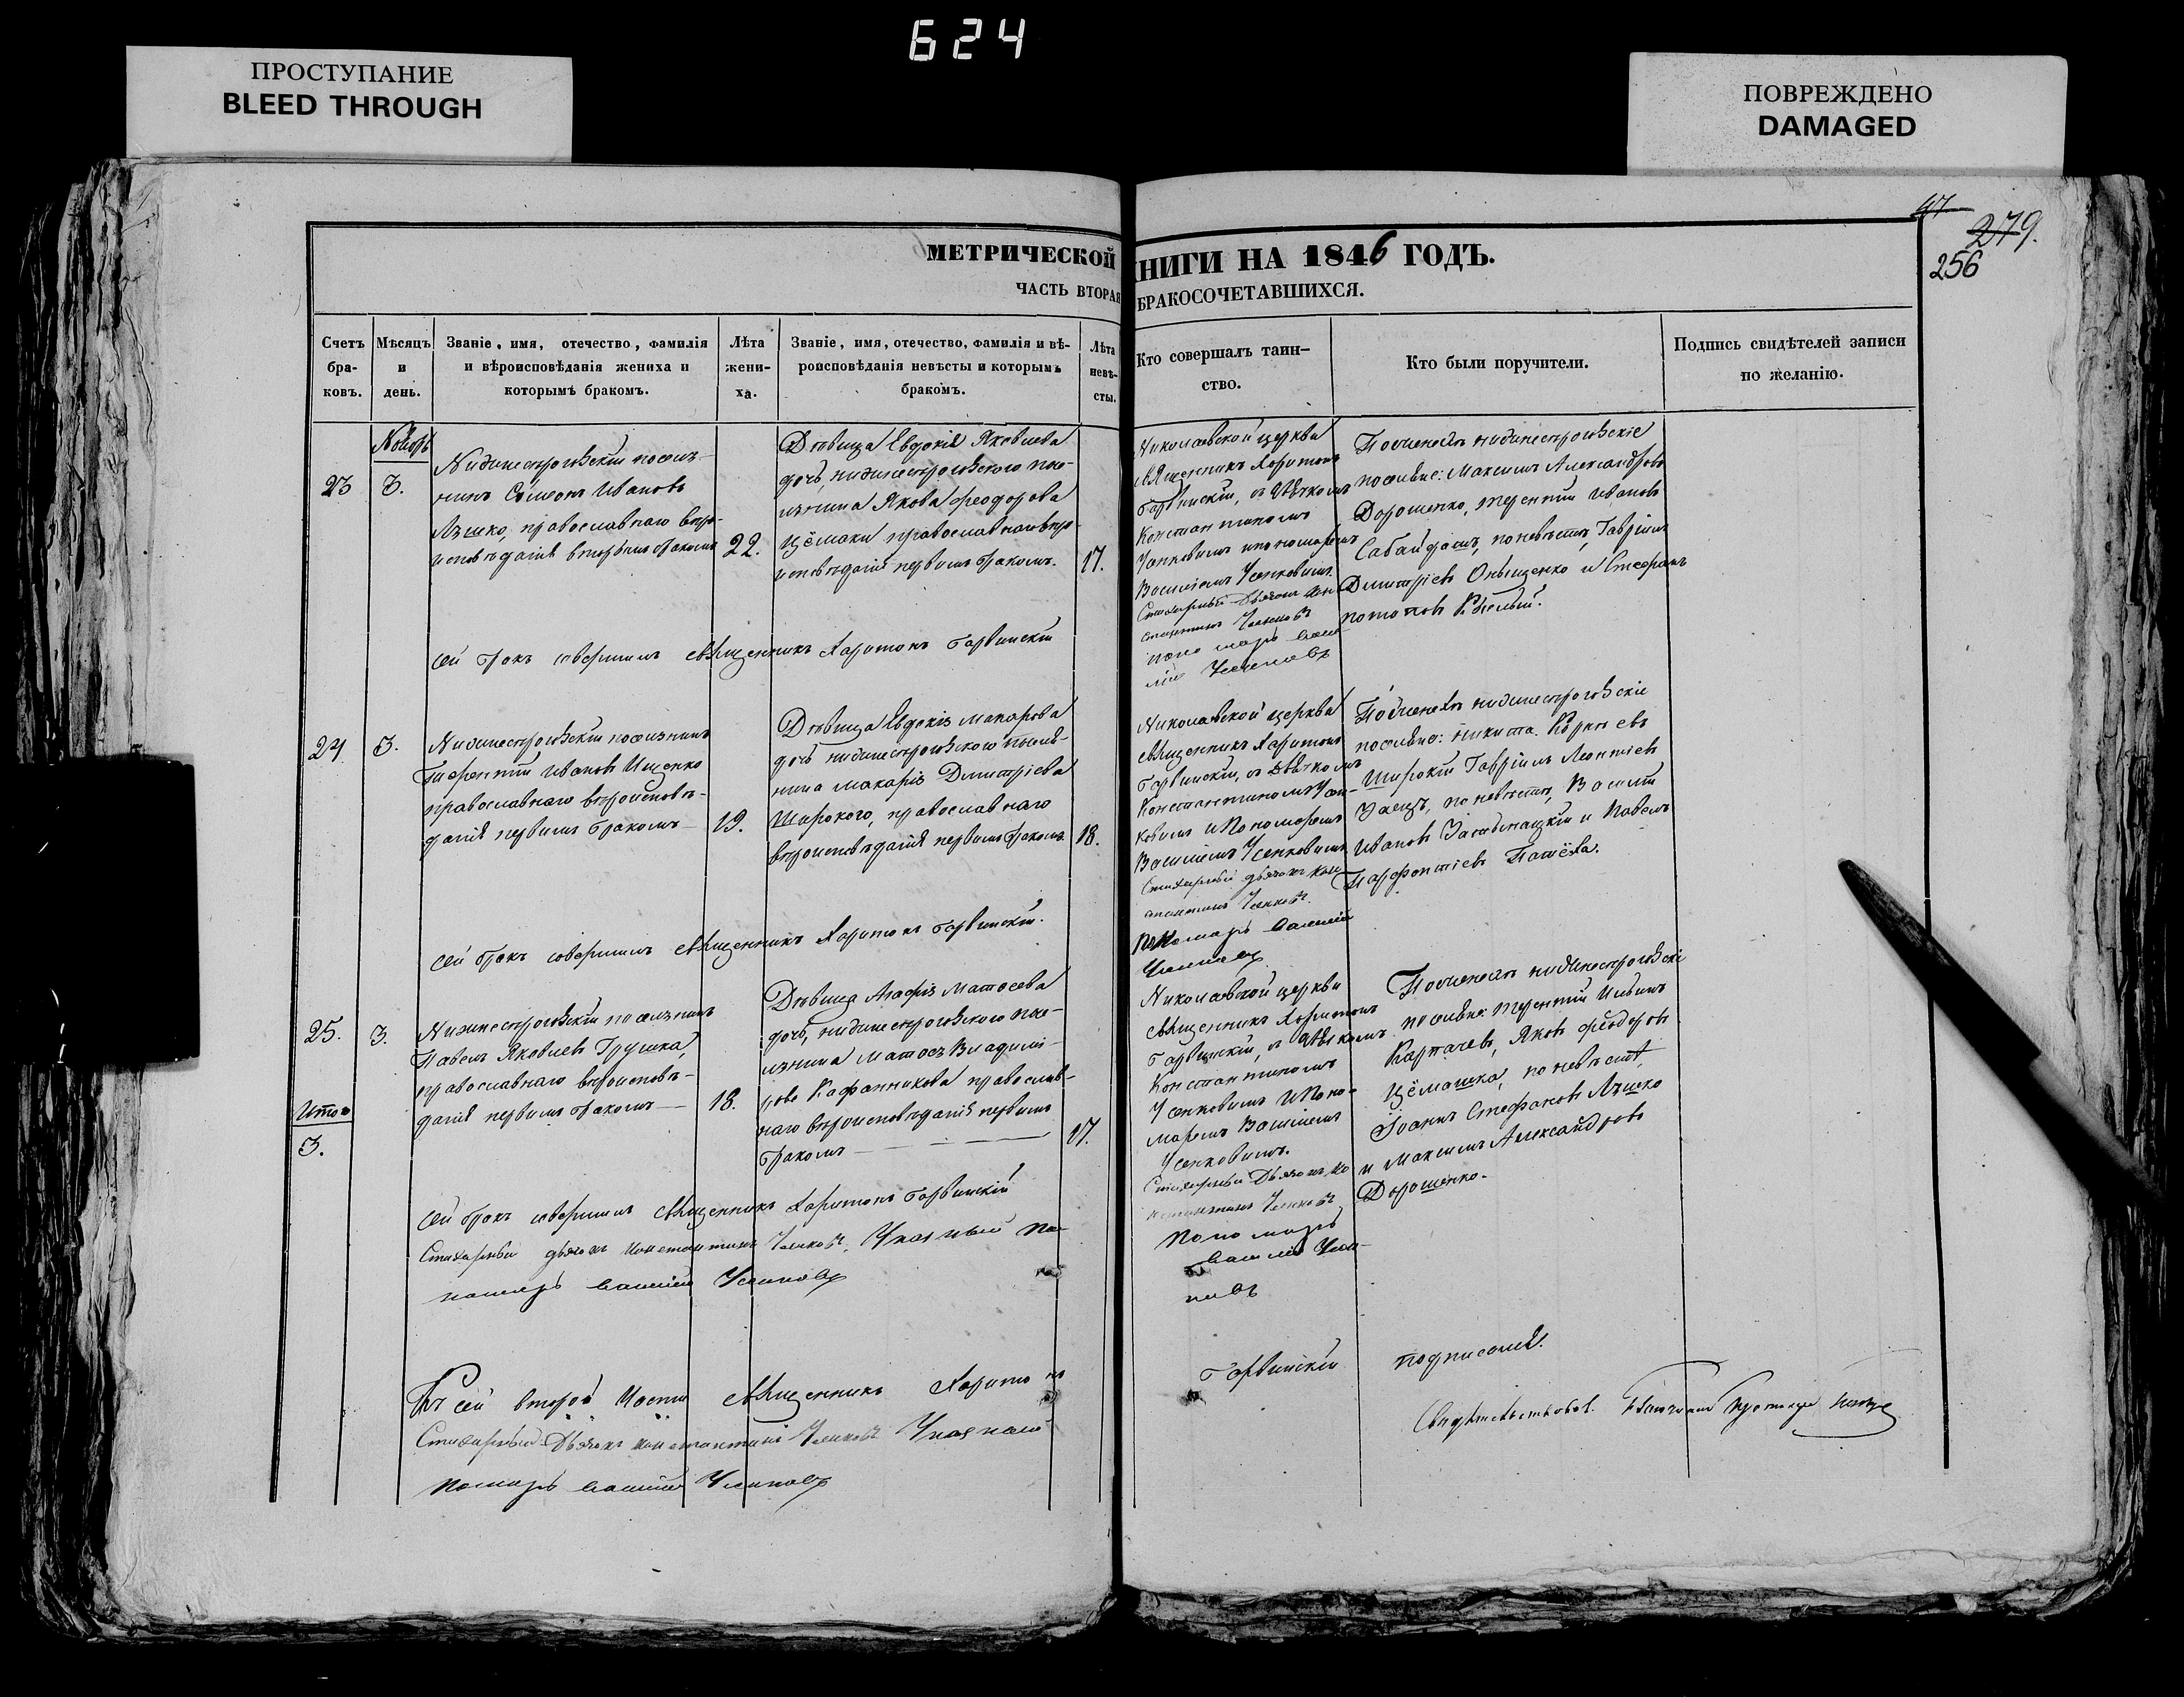 624
ПРОСТУПАНИЕ
BLEED THROUGH
ПОВРЕЖДЕНО
DAMAGED
47
279.
256
МЕТРИЧЕСКОЙ
НИГИ НА 1846 ГОДЪ.
ЧАСТЬ ВТОРАЯ
БРАКОСОЧЕТАВШИХСЯ.
Счетъ бра-ковъ.
Мѣсяцъ и день.
Званіе, имя, отечество, фамилія
и вѣроисповѣданія жениха и
которымъ бракомъ.
Лѣта жени-ха.
Званіе, имя, отечество, фамилія и вѣ-
роисповѣданія невѣсты и которымъ
бракомъ.
Лѣта невѣ-сты.
Кто совершалъ таин-
ство.
Кто были поручители.
Подпись свидѣтелей записи
по желанію.
Ноябрь
23
3.
поселя-
нинъ Симеонъ Ивановъ
Ляшко, православнаго вѣро-
исповѣданія вторымъ бракомъ
22.
Дѣвица Евдокія Яковлева
дочь, нидинестроговского посе-
лянина Якова Феодорова
Цёмахи православнаго вѣро-
исповѣданія первымъ бракомъ.
17.
Николаевской церкви
священникъ Харитонъ
съ дьячкомъ
Константиномъ
Усенковымъ и пономаремъ
Василіемъ Усенковымъ.
Стихарный Дьячокъ Кон-
стантинъ Усенковъ
пономарь Васи-
лій Усенковъ
По женихѣ нидинестроговскіе
поселяне: Максимъ Александровъ
Дорошенко, Терентій Ивановъ
Сабайдашъ, по невѣстѣ, Гавріилъ
Дмитріевъ Онищенко и Стефанъ
Потаповъ
Сей бракъ совершилъ священникъ Харитонъ
24
3.
поселянинъ
Терентій Ивановъ Ищенко
православнаго вѣроисповѣ-
данія первымъ бракомъ
19.
Дѣвица Евдокія Макарова
дочь нидинестроговского поселя-
нина Макарія Дмитріева
Широкого, православнаго
вѣроисповѣданія первымъ бракомъ
18.
Николаевской церкви
священникъ Харитонъ
съ дьячкомъ
Константиномъ Усен-
ковымъ и Пономаремъ
Василіемъ Усенковымъ
Стихарный дьячокъ Кон-
стантинъ Усенковъ.
Пономарь Василій
Усенковъ
По женихѣ нидинестроговскіе
поселяне: Никита Корнѣевъ
Широкій Гавріилъ Леонтіевъ
Заецъ, по невѣстѣ, Василій
Ивановъ и Павелъ
Парфентіевъ Патёха.
Сей бракъ совершилъ священникъ Харитонъ
25.
3.
поселянинъ
Павелъ Яковлевъ Грушка,
православнаго вѣроисповѣ-
данія первымъ бракомъ
18.
Дѣвица Агафія Матѳеева
дочь, нидинестроговского посе-
лянина Матѳея Владимі-
рова Кафанникова православ-
наго вѣроисповѣданія первымъ
бракомъ
17.
Николаевской церкви
священникъ Харитонъ
съ дьячкомъ
Константиномъ
Усенковымъ и Поно-
маремъ Василіемъ
Усенковымъ.
Стихарный Дьячокъ Ко-
нстантинъ Усенковъ
Пономарь
Василій Усен-
ковъ
По женихѣ нидинестроговскіе
поселяне: Терентій Ильинъ
Карпачевъ, Яковъ Ѳеодоровъ
Цёмашка, по невѣстѣ,
Іоаннъ Стефановъ Ляшко
и Максимъ Александровъ
Дорошенко.
Итого
3.
Сей бракъ совершилъ священникъ Харитонъ
Стихарный дьячокъ Константинъ Усенковъ, Указный по-
номарь Василій Усенковъ
Къ сей второй части священникъ Харитонъ
подписался.
Стихарный Дьячокъ Константинъ Усенковъ
Василій Усенковъ
Свидѣтельствовалъ